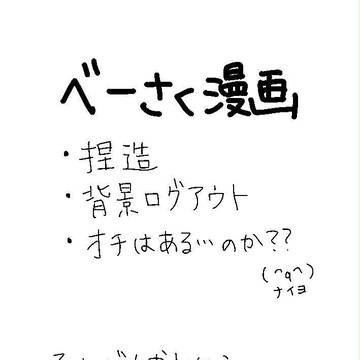 べーさく漫画
・捏造
・背景ログアウト
・オチはある…のか??
(^q^)
ナイヨ